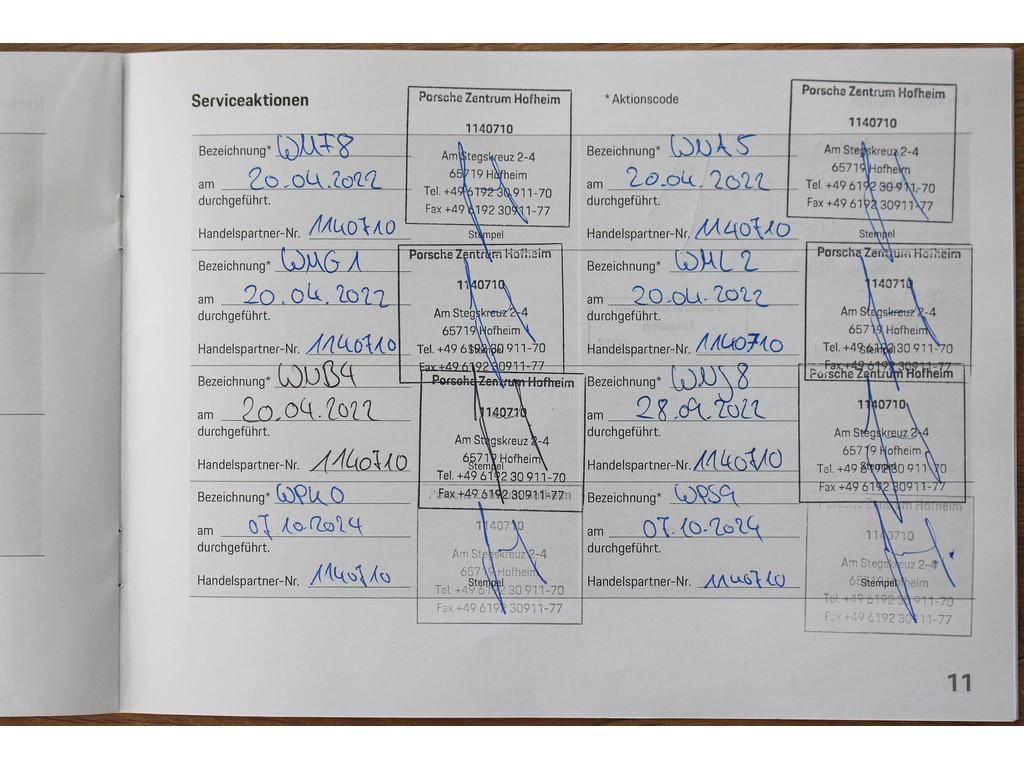 Serviceaktionen
* Aktionscode
Bezeichnung* WMF8
am 20.04.2022
durchgeführt.
Handelspartner-Nr. 1140710
Porsche Zentrum Hofheim
1140710
Am Stegskreuz 2-4
65719 Hofheim
Tel. +49 6192 30 911-70
Fax +49 6192 30911-77
Stempel
Bezeichnung* WNA5
am 20.04.2022
durchgeführt.
Handelspartner-Nr. 1140710
Porsche Zentrum Hofheim
1140710
Am Stegskreuz 2-4
65719 Hofheim
Tel. +49 6192 30 911-70
Fax +49 6192 30911-77
Stempel
Bezeichnung* WMG1
am 20.04.2022
durchgeführt.
Handelspartner-Nr. 1140710
Porsche Zentrum Hofheim
1140710
Am Stegskreuz 2-4
65719 Hofheim
Tel. +49 6192 30 911-70
Fax +49 6192 30911-77
Stempel
Bezeichnung* WML2
am 20.04.2022
durchgeführt.
Handelspartner-Nr. 1140710
Porsche Zentrum Hofheim
1140710
Am Stegskreuz 2-4
65719 Hofheim
Tel. +49 6192 30 911-70
Fax +49 6192 30911-77
Stempel
Bezeichnung* WNB4
am 20.04.2022
durchgeführt.
Handelspartner-Nr. 1140710
Porsche Zentrum Hofheim
1140710
Am Stegskreuz 2-4
65719 Hofheim
Tel. +49 6192 30 911-70
Fax +49 6192 30911-77
Stempel
Bezeichnung* WNJ8
am 28.09.2022
durchgeführt.
Handelspartner-Nr. 1140710
Porsche Zentrum Hofheim
1140710
Am Stegskreuz 2-4
65719 Hofheim
Tel. +49 6192 30 911-70
Fax +49 6192 30911-77
Stempel
Bezeichnung* WPK0
am 07.10.2024
durchgeführt.
Handelspartner-Nr. 1140710
Porsche Zentrum Hofheim
1140710
Am Stegskreuz 2-4
65719 Hofheim
Tel. +49 6192 30 911-70
Fax +49 6192 30911-77
Stempel
Bezeichnung* WPS9
am 07.10.2024
durchgeführt.
Handelspartner-Nr. 1140710
Porsche Zentrum Hofheim
1140710
Am Stegskreuz 2-4
65719 Hofheim
Tel. +49 6192 30 911-70
Fax +49 6192 30911-77
Stempel
11